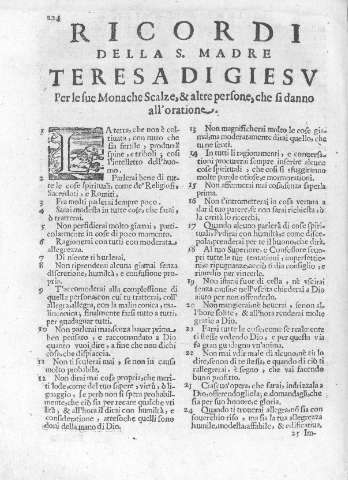 224
RICORDI
DELLA S. MADRE
TERESA DI GIESV
Per le sue Monache Scalze, & altre persone, che si danno
all'oratione.
1 LA terra, che non è col-
tiuata, con tutto che
sia fertile, produrrà
spine, e triboli; così
l'intelletto dell'huo-
mo.
2 Parlerai bene di tut-
te le cose spirituali, come de' Religiosi,
Sacerdoti, e Romiti.
3 Fra molti parlerai sempre poco.
4 Sarai modesta in tutte cose, che farai,
ò tratterai.
5 Non porfidierai molto giamai, parti-
colarmente in cose di poco momento.
6 Ragionerai con tutti con moderata
allegrezza.
7 Di niente ti burlerai.
8 Non riprenderai alcuno giamai senza
discretione, humiltà, e confusione pro-
pria.
9 T'accomoderai alla complessione di
quella persona con cui tu tratterai, coll'
allegra allegra, con la malinconica, ma
linconica; finalmente farsi tutto a tutti,
per guadagnar tutti.
10 Non parlerai mai senza hauer prima
ben pensato, e raccomandato a Dio
quanto vuoi dire, a fine che non dichi
cosa, che dispiaccia.
11 Non ti scuserai mai, se non in causa
molto probabile.
12 Non dirai mai cosa propria, che meri-
ti lode, come del tuo sapere, virtù, ò li-
gnaggio, se però non si spera probabil-
mente, che ciò sia per recare qualche vti
lità, & all'hora il dirai con humiltà, e
consideratione, attesoche quelli sono
doni della mano di Dio.
13 Non magnificherai molto le cose gia-
mai, ma moderatamente dirai quello, che
tu ne senti.
14 In tutti li ragionamenti, e conuersa-
tioni procurerai sempre inserire alcune
cose spirituali, e che così si sfuggiranno
molte parole otiose, e mormorationi.
15 Non affermerai mai cosa senza saperla
prima.
16 Non t'intrometterai in cosa veruna a
dar il tuo parere, se non sarai richiesta, ò
la carità lo ricerchi.
17 Quando alcuno parlerà di cose spiri-
tuali, l'vdirai con humiltà, e come disce-
pola, prenderai per te il buono che dirà.
18 Al tuo Superiore, e Confessore scuo-
pri tutte le tue tentationi, imperfettio-
ni, e repugnanze, acciò ti dia consiglio, e
rimedio per vincerle.
19 Non istarai fuor di cella, nè vscirai
senza causa, e nell'vscita chiederai a Dio
aiuto per non offenderlo.
20 Non mangierai, nè beuerai, se non al-
l'hore solite, & all'hora renderai molte
gratie a Dio.
21 Farai tutte le cose, come se realmente
ti stesse vedendo Dio, e per questa via
fà gran guadagno vn'anima.
22 Non mai vdirai male di alcuno, nè tù lo
dire, se non di te stessa, e quando di ciò ti
rallegrerai, è segno, che vai facendo
buon profitto.
23 Ciascun'opera, che farai, indirizzala a
Dio, offerendogliela, e domandagli, che
sia per suo honore, e gloria.
24 Quando ti trouerai allegra, nõ sia con
souerchio riso, ma sia la tua allegrezza
humile, modesta, affabile, & edificatiua.
25 Im-